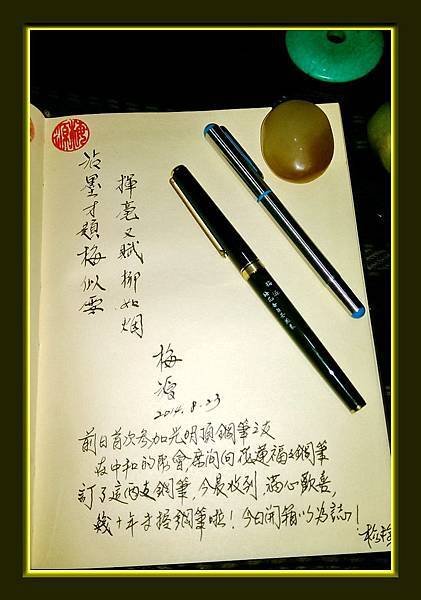 揮毫又賦柳如烟
沾墨才題梅似雪
梅
2014.8.23
前日首次參加光明頂鋼筆之友
在中和的聚會,席間向花蓮福鋼筆
訂了這兩支鋼筆,今晨收到,滿心歡喜,
幾十年才握鋼筆啦!今日開箱以為誌!